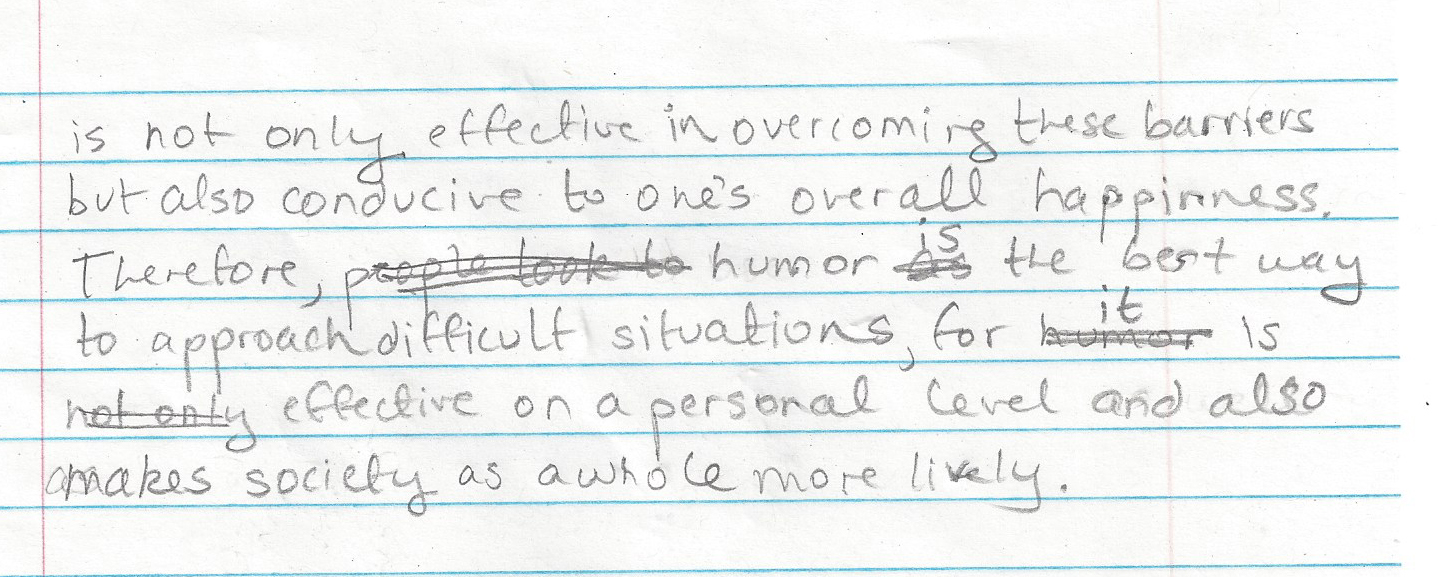 is not only effective in overcoming these barriers
but also conducive to one's overall happinness.
Therefore, people look to humor is the best way
to approach difficult situations, for humor it is
not only effective on a personal level and also
makes society as a whole more lively.